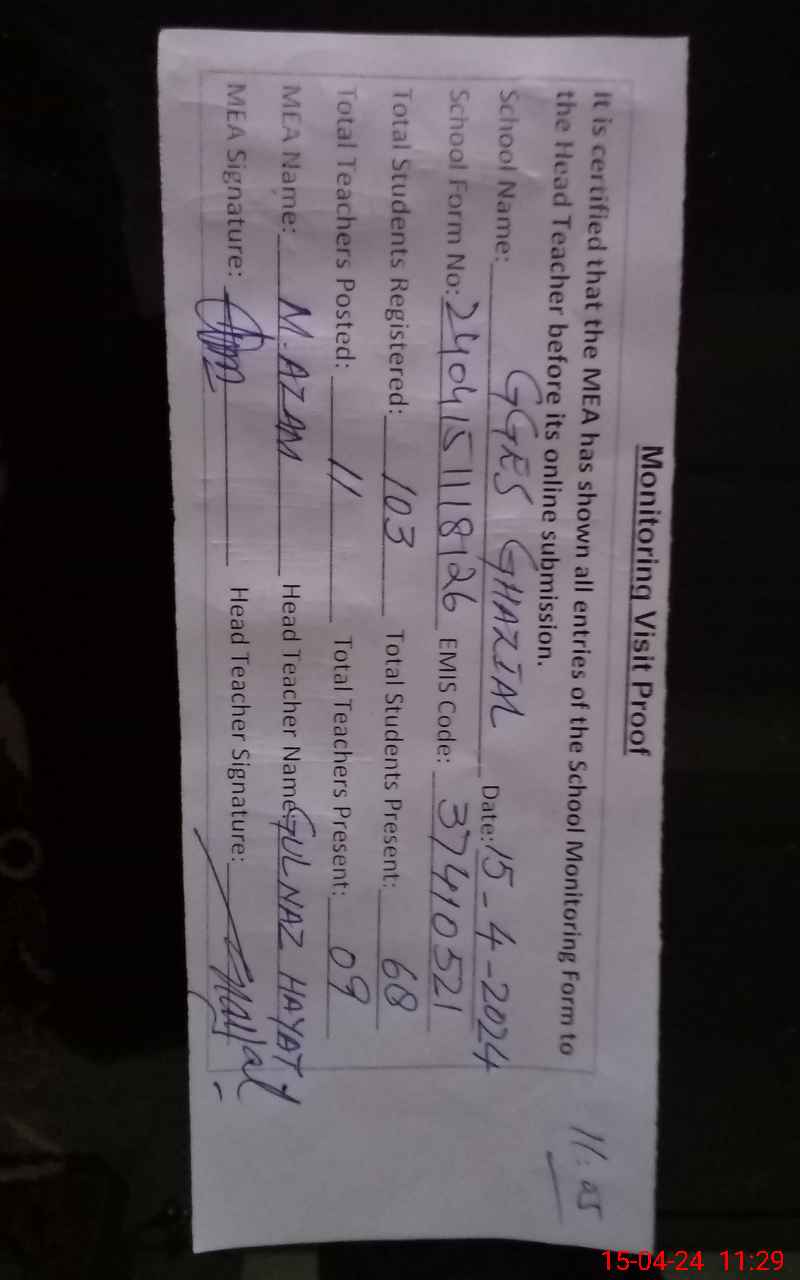 Monitoring Visit Proof
11:05
It is certified that the MEA has shown all entries of the School Monitoring Form to
the Head Teacher before its online submission.
School Name: GGES GHAZIAL Date: 15-4-2024
School Form No: 2404151118126 EMIS Code: 37410521
Total Students Registered: 103 Total Students Present: 68
Total Teachers Posted: 11 Total Teachers Present: 09
MEA Name: M. AZAM Head Teacher Name: GULNAZ HAYAT
MEA Signature: Head Teacher Signature:
15-04-24 11:29